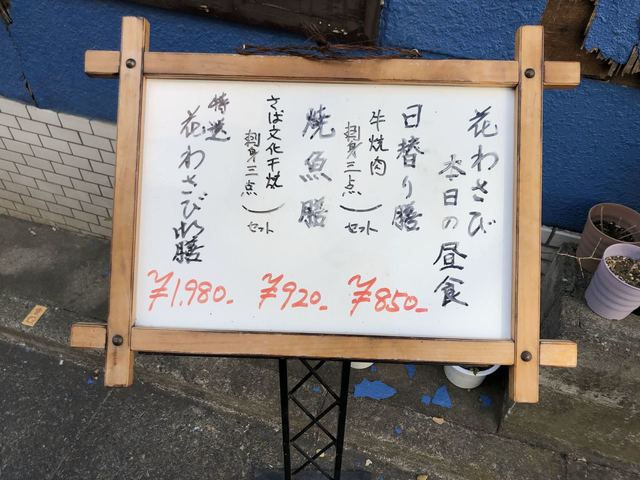 花わさび
本日の昼食
日替り膳
牛焼肉
刺身三点
セット
¥850-
焼魚膳
さば文化干焼
刺身三点
セット
¥920-
特選
花わさび膳
¥1,980-